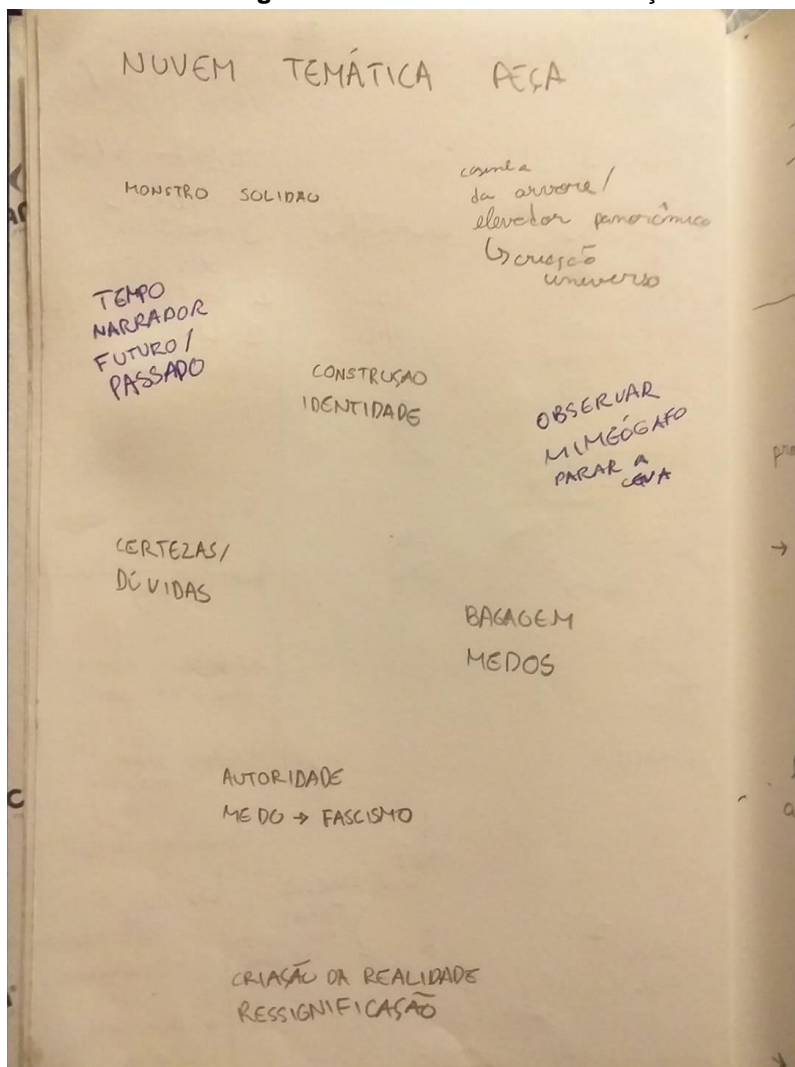 NUVEM TEMÁTICA PEÇA
MONSTRO SOLIDAO
da arvore/
elevador panorâmico
↳ criação
universo
TEMPO
NARRADOR
FUTURO/
PASSADO
CONSTRUÇAO
IDENTIDADE
OBSERVAR
MIMEÓGAFO
PARAR A
CENA
CERTEZAS/
DÚVIDAS
BAGAGEM
MEDOS
AUTORIDADE
MEDO → FASCISMO
CRIAÇÃO DA REALIDADE
RESSIGNIFICAÇÃO